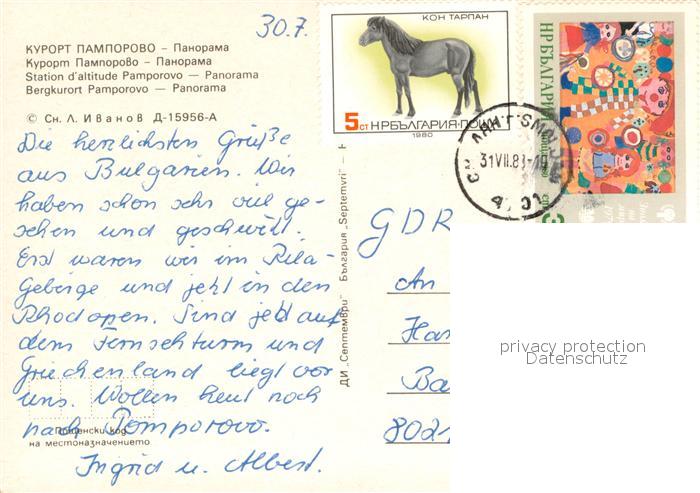 30.7.
КУРОРТ ПАМПОРОВО – Панорама
Курорт Пампорово – Панорама
Station d'altitude Pamporovo — Panorama
Bergkurort Pamporovo — Panorama
© Сн. Л. Иванов Д-15956-А
Die herzlichsten Grüße
aus Bulgarien. Wir
haben schon sehr viel ge-
sehen und
Erst waren wir im Rila-
Gebirge und jetzt in den
Rhodopen. Sind jetzt auf
dem Fernsehturm und
Griechenland liegt vor
uns. Wollen heut noch
nach Pomporovo.
Ingrid u. Albert.
Пощенски код
на местоназначението
ДИ „Септември" България „Septemvri" – H
КОН ТАРПАН
5 СТ НР БЪЛГАРИЯ·ПОЩА
1980
НР БЪЛГАРИЯ
31.VII.81-19
GDR
An
Han
Ba
8021
privacy protection
Datenschutz